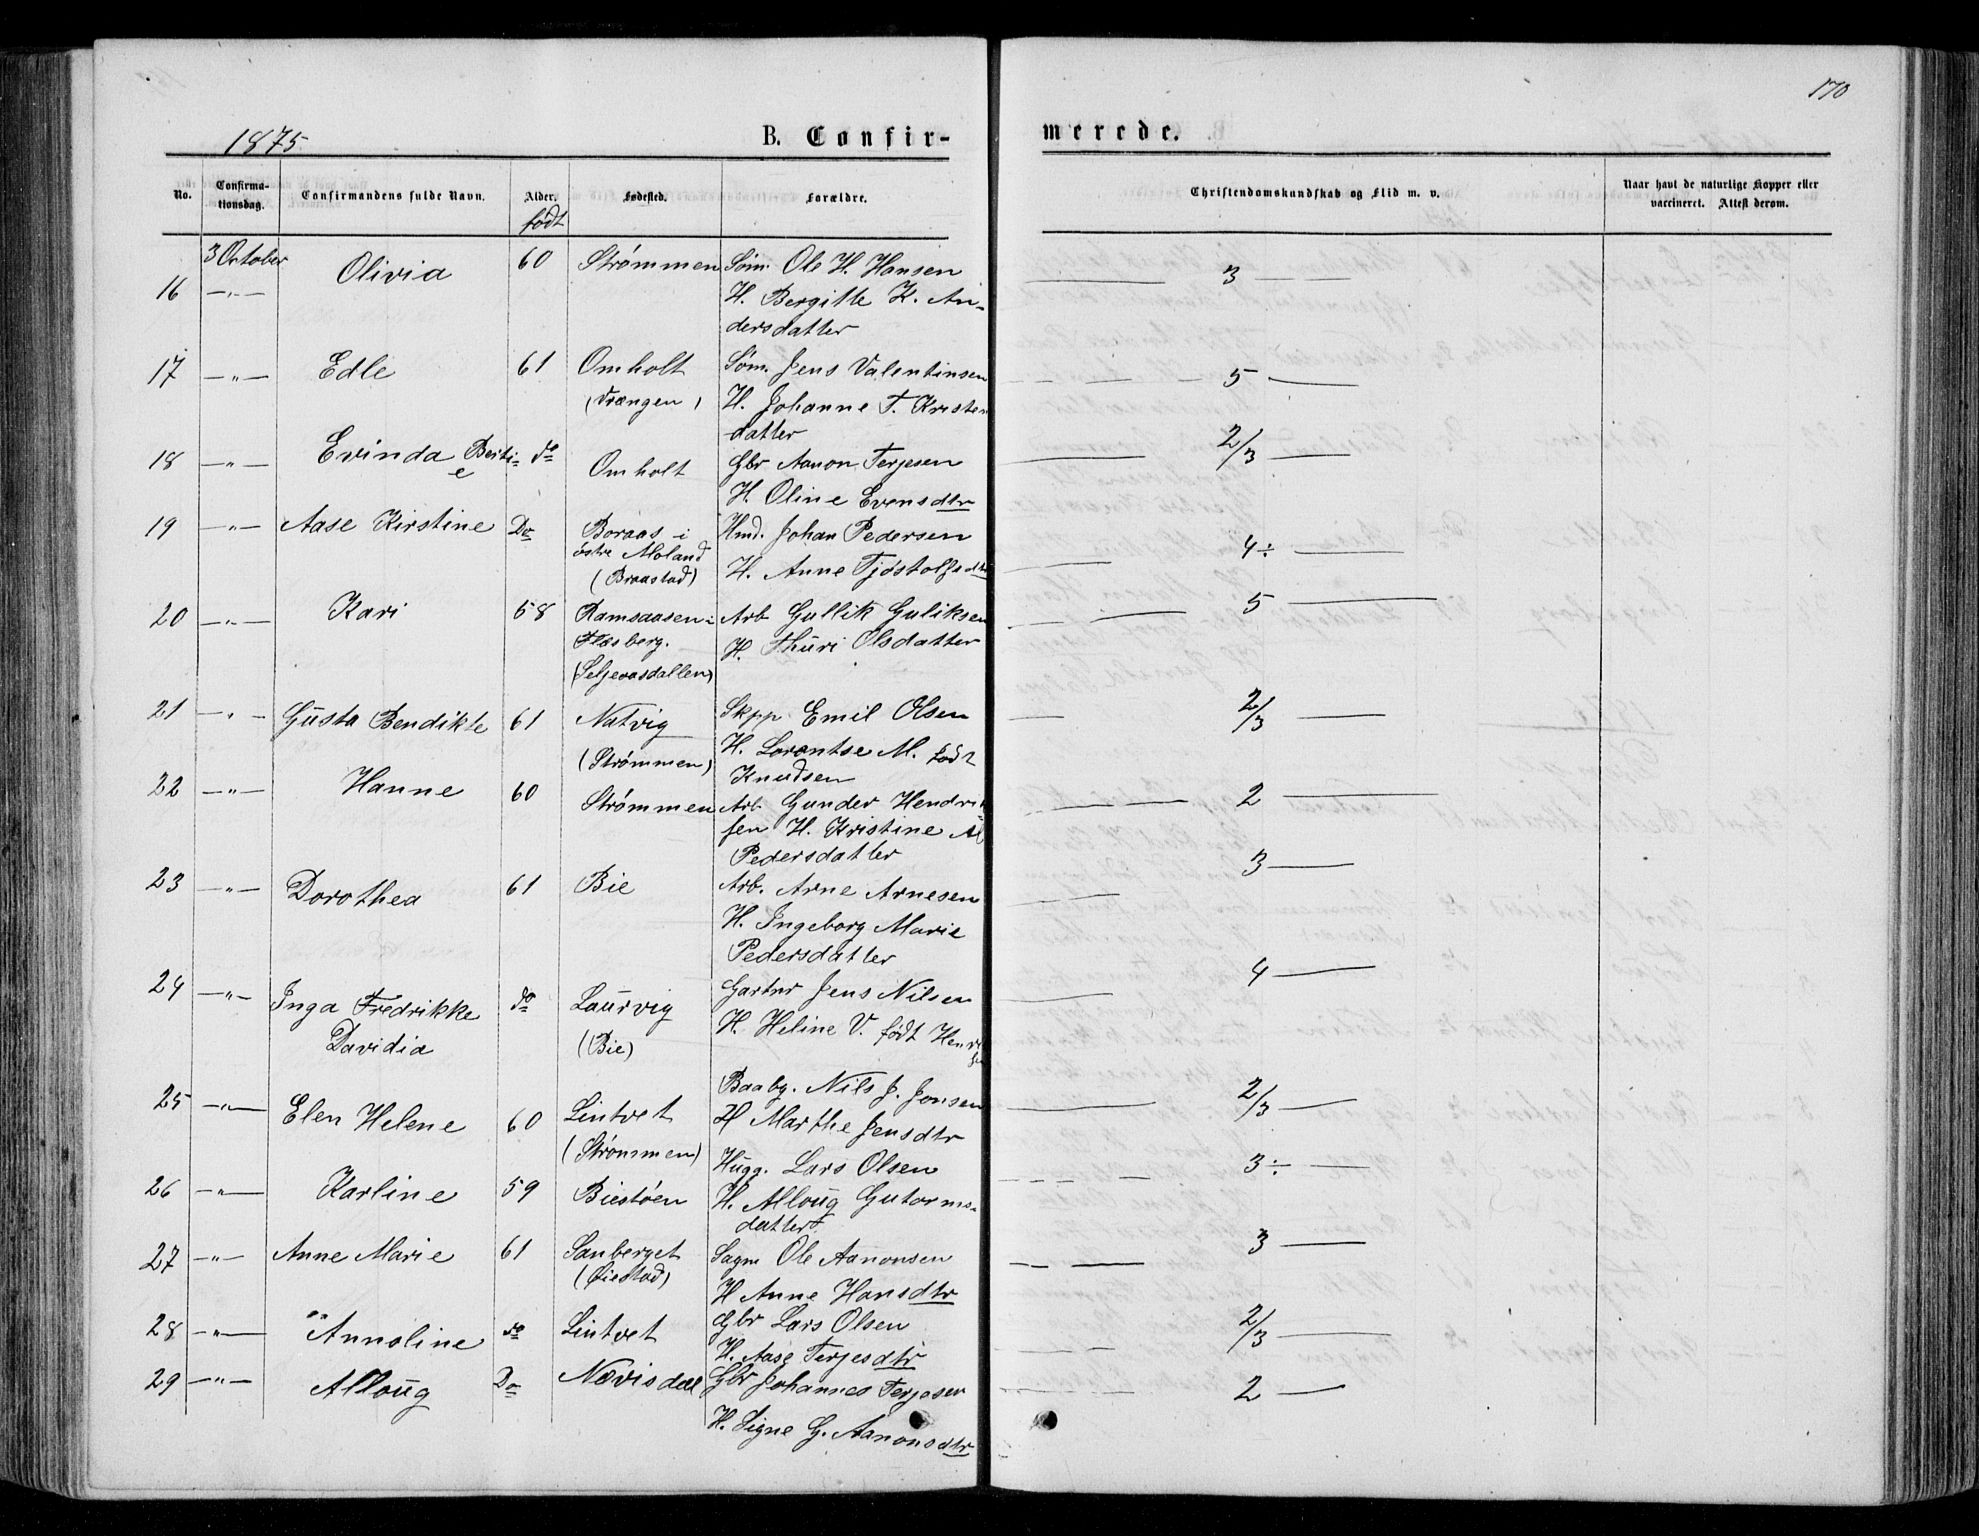 170
1875
B. Confir-
merede.
No. Confirma-tionsdag. Confirmandens fulde Navn. Alder. Fødested. Forældre. Christendomskundskab og Flid m. v. Naar havt de naturlige Kopper eller vaccineret. Attest derom.
født
3 October Olivia 60 Strømmen Søm. Ole H. Hansen 3
16 -"- H. Bergitte K. An-
dersdatter
17 -"- Edle 61 Omholt Søm. Jens Valentinsen 5
(Vrængen) H. Johanne T. Kristen
datter
18 -"- Evinda Berti- do Omholt Gbr Aanon Terjesen 2/3
e H. Oline Evensdtr
19 -"- Aase Kirstine Do Boraas i Hmd. Johan Pedersen 4÷
østre Moland H. Anne Tjøstolfsdtr
(Braastad)
20 -"- Kari 58 Ramsaasen i Arb Gullik Guliksen 5
Flesberg. H. Thuri Olsdatter
(Seljevasdallen)
21 -"- Gusta Bendikte 61 Natvig Skpp. Emil Olsen 2/3
(Strømmen) H. Lorantse M. født
Knudsen
22 -"- Hanne 60 Strømmen Arb. Gunder Hendrik 2
sen H. Kristine Al
Pedersdatter
23 -"- Dorothea 61 Bie Arb. Arne Arnesen 3
H. Ingeborg Marie
Pedersdatter
24 -"- Inga Fredrikke do Laurvig Gartnr Jens Nilsen 4
Davidia (Bie) H. Heline V. født Henrik
sen
25 -"- Elen Helene 60 Lintvet Baabg. Nils J. Jonsen 2/3
(Strømmen) H Marthe Jensdtr
26 -"- Karline 59 Biestøen Hugg. Lars Olsen 3÷
H. Alloug Gutorms-
datter
27 -"- Anne Marie 61 Sanberget Sagm Ole Aanonsen 3
(Øiestad) H Anne Hansdtr
28 -"- Annoline do Lintvet Gbr Lars Olsen 2/3
H. Aase Terjesdtr
29 -"- Alloug Do Nævisdal Gbr Johannes Terjesen 2
H. Signe G. Aanonsdtr